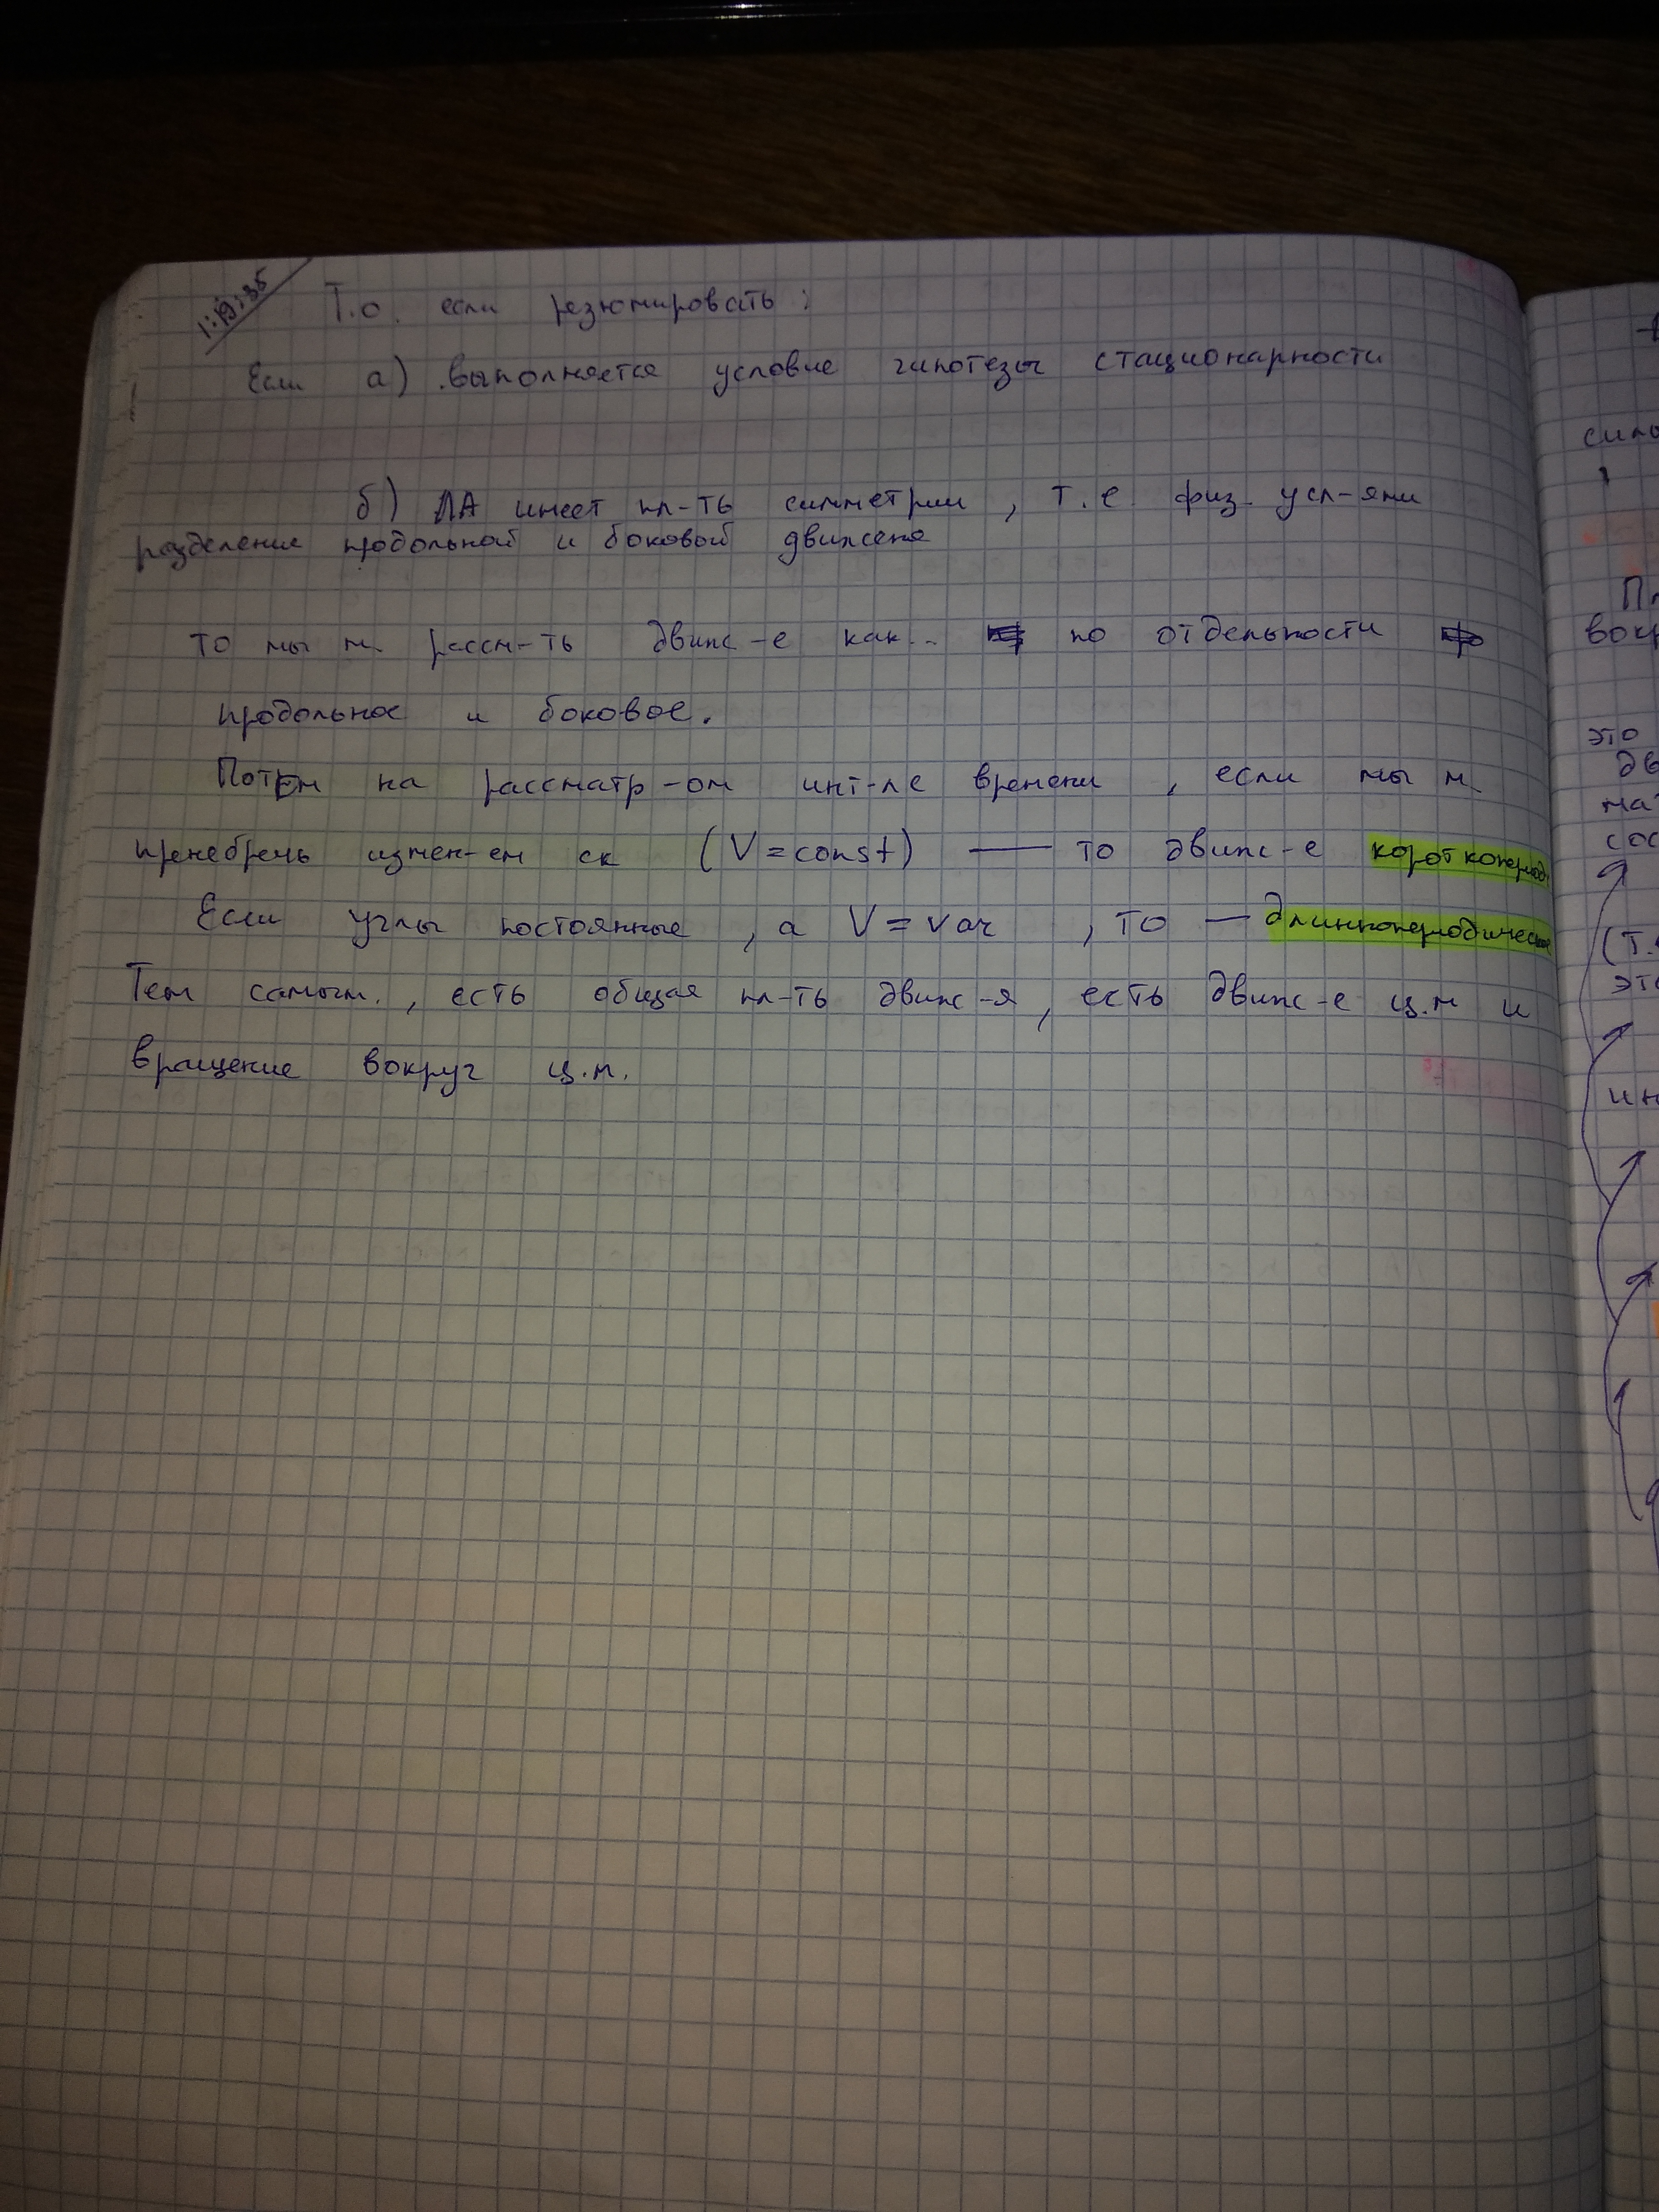 1:19:35
Т.о. если резюмировать:
Если а) выполняется условие гипотезы стационарности
б) ЛА имеет пл-ть симметрии, т.е. физ. усл-ями
разделение продольной и боковой движения
то мы м. рассм-ть движ-е как.. по отдельности
продольное и боковое.
Потом на рассматр-ом инт-ле времени, если мы м.
пренебречь измен-ем ск (V=const) — то движ-е короткопериод.
Если углы постоянные, а V=var, то — длиннопериодическое
Тем самым, есть общая пл-ть движ-я, есть движ-е ц.м и
вращение вокруг ц.м.
силы
вокр
это
дв
мат
сос
(т.
это
ин